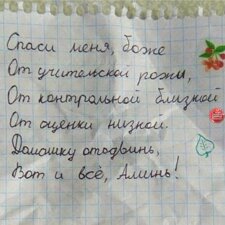 Спаси меня, боже
От учительской рожи,
От контрольной близкой
От оценки низкой.
Домашку отодвинь,
Вот и всё, Аминь!